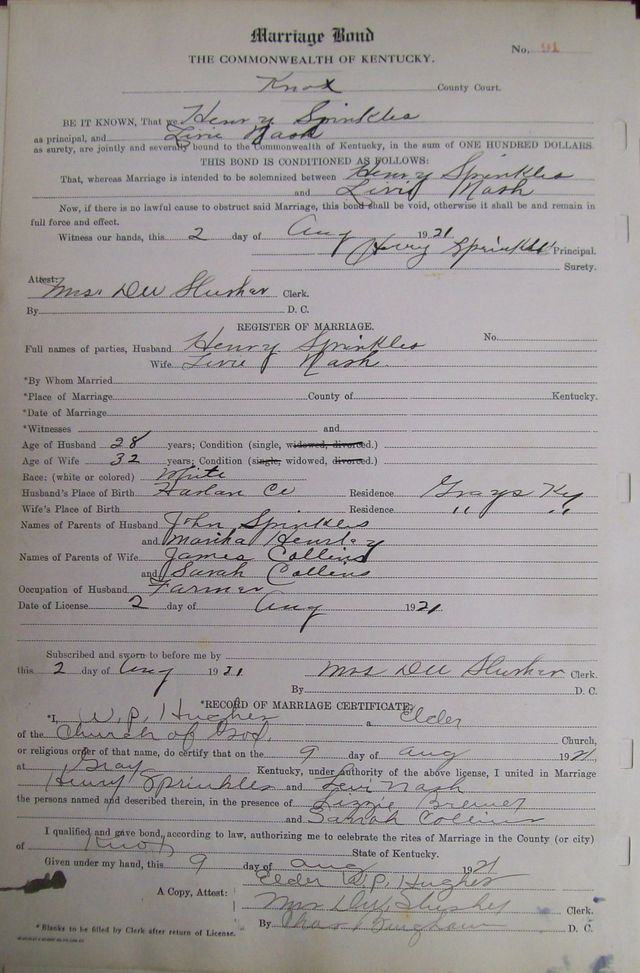 Marriage Bond
No. 91
THE COMMONWEALTH OF KENTUCKY.
Knox County Court.
BE IT KNOWN, That we Henry Sprinkles
as principal, and Livie Nash
as surety, are jointly and severally bound to the Commonwealth of Kentucky, in the sum of ONE HUNDRED DOLLARS
THIS BOND IS CONDITIONED AS FOLLOWS:
That, whereas Marriage is intended to be solemnized between Henry Sprinkles
and Livie Nash
Now, if there is no lawful cause to obstruct said Marriage, this bond shall be void, otherwise it shall be and remain in
full force and effect.
Witness our hands, this 2 day of Aug 1921
Henry Sprinkles Principal.
Surety.
Attest:
Mrs Dee Slusher Clerk.
By D. C.
REGISTER OF MARRIAGE.
Full names of parties, Husband Henry Sprinkles No.
Wife Livie Nash.
*By Whom Married
*Place of Marriage County of Kentucky.
*Date of Marriage
*Witnesses and
Age of Husband 28 years; Condition (single, widowed, divorced.)
Age of Wife 32 years; Condition (single, widowed, divorced.)
Race: (white or colored) White
Husband's Place of Birth Harlan Co Residence Grays Ky
Wife's Place of Birth Residence " "
Names of Parents of Husband John Sprinkles
and Martha Hensley
Names of Parents of Wife James Collins
and Sarah Collins
Occupation of Husband Farmer
Date of License 2 day of Aug 1921
Subscribed and sworn to before me by
this 2 day of Aug 1921 Mrs Dee Slusher Clerk.
By D. C.
*RECORD OF MARRIAGE CERTIFICATE.
*I, W. P. Hughes a Elder
of the Church of God. Church,
or religious order of that name, do certify that on the 9 day of Aug 1921
at Gray Kentucky, under authority of the above license, I united in Marriage
Henry Sprinkles and Levi Nash
the persons named and described therein, in the presence of Lizzie Brewer
and Sarah Collins
I qualified and gave bond, according to law, authorizing me to celebrate the rites of Marriage in the County (or city)
of Knox State of Kentucky.
Given under my hand, this 9 day of Aug 1921
Elder W. P. Hughes
A Copy, Attest: Mrs Dee Slusher Clerk.
By Chas Bingham D. C.
*Blanks to be filled by Clerk after return of License.